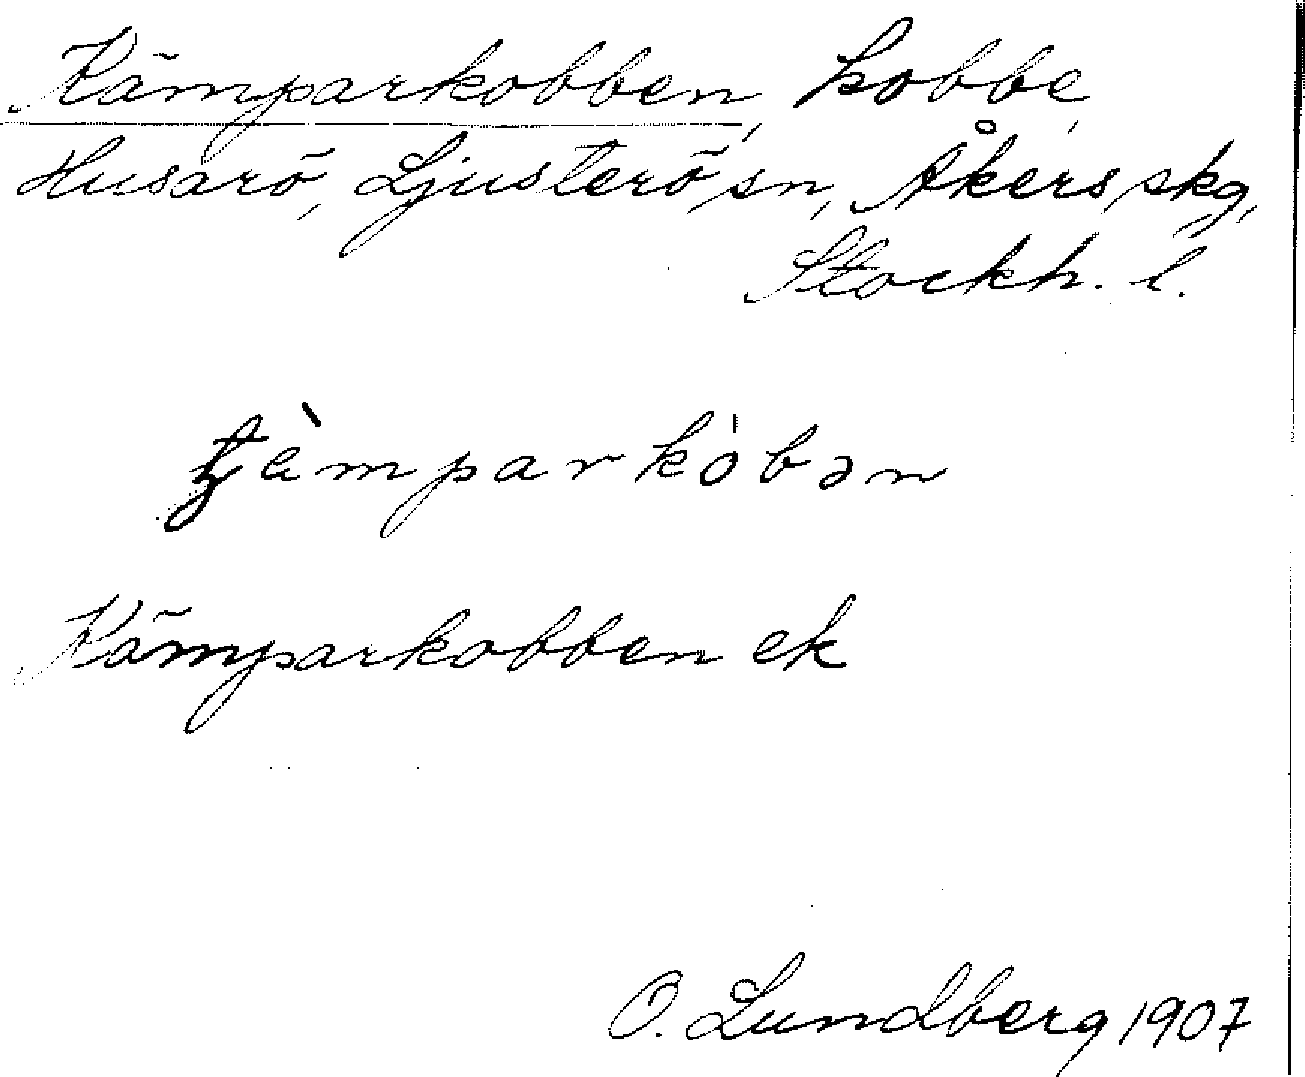 Kämparkobben, kobbe,
Husarö, Ljusterö sn, Åkers skg,
Stockh. l.
ꞔèmparkȯbən
Kämparkobben ek
O. Lundberg 1907